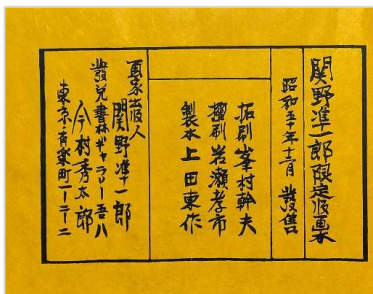 関野準一郎限定版画集
昭和五十年十二月 發售
拓刷 峯村幹夫
摺刷 岩瀬孝市
製本 上田東作
畫家出版人
関野準一郎
發兌書林ギャラリー吾八
今村秀太郎
東京・有楽町一ー二ー二